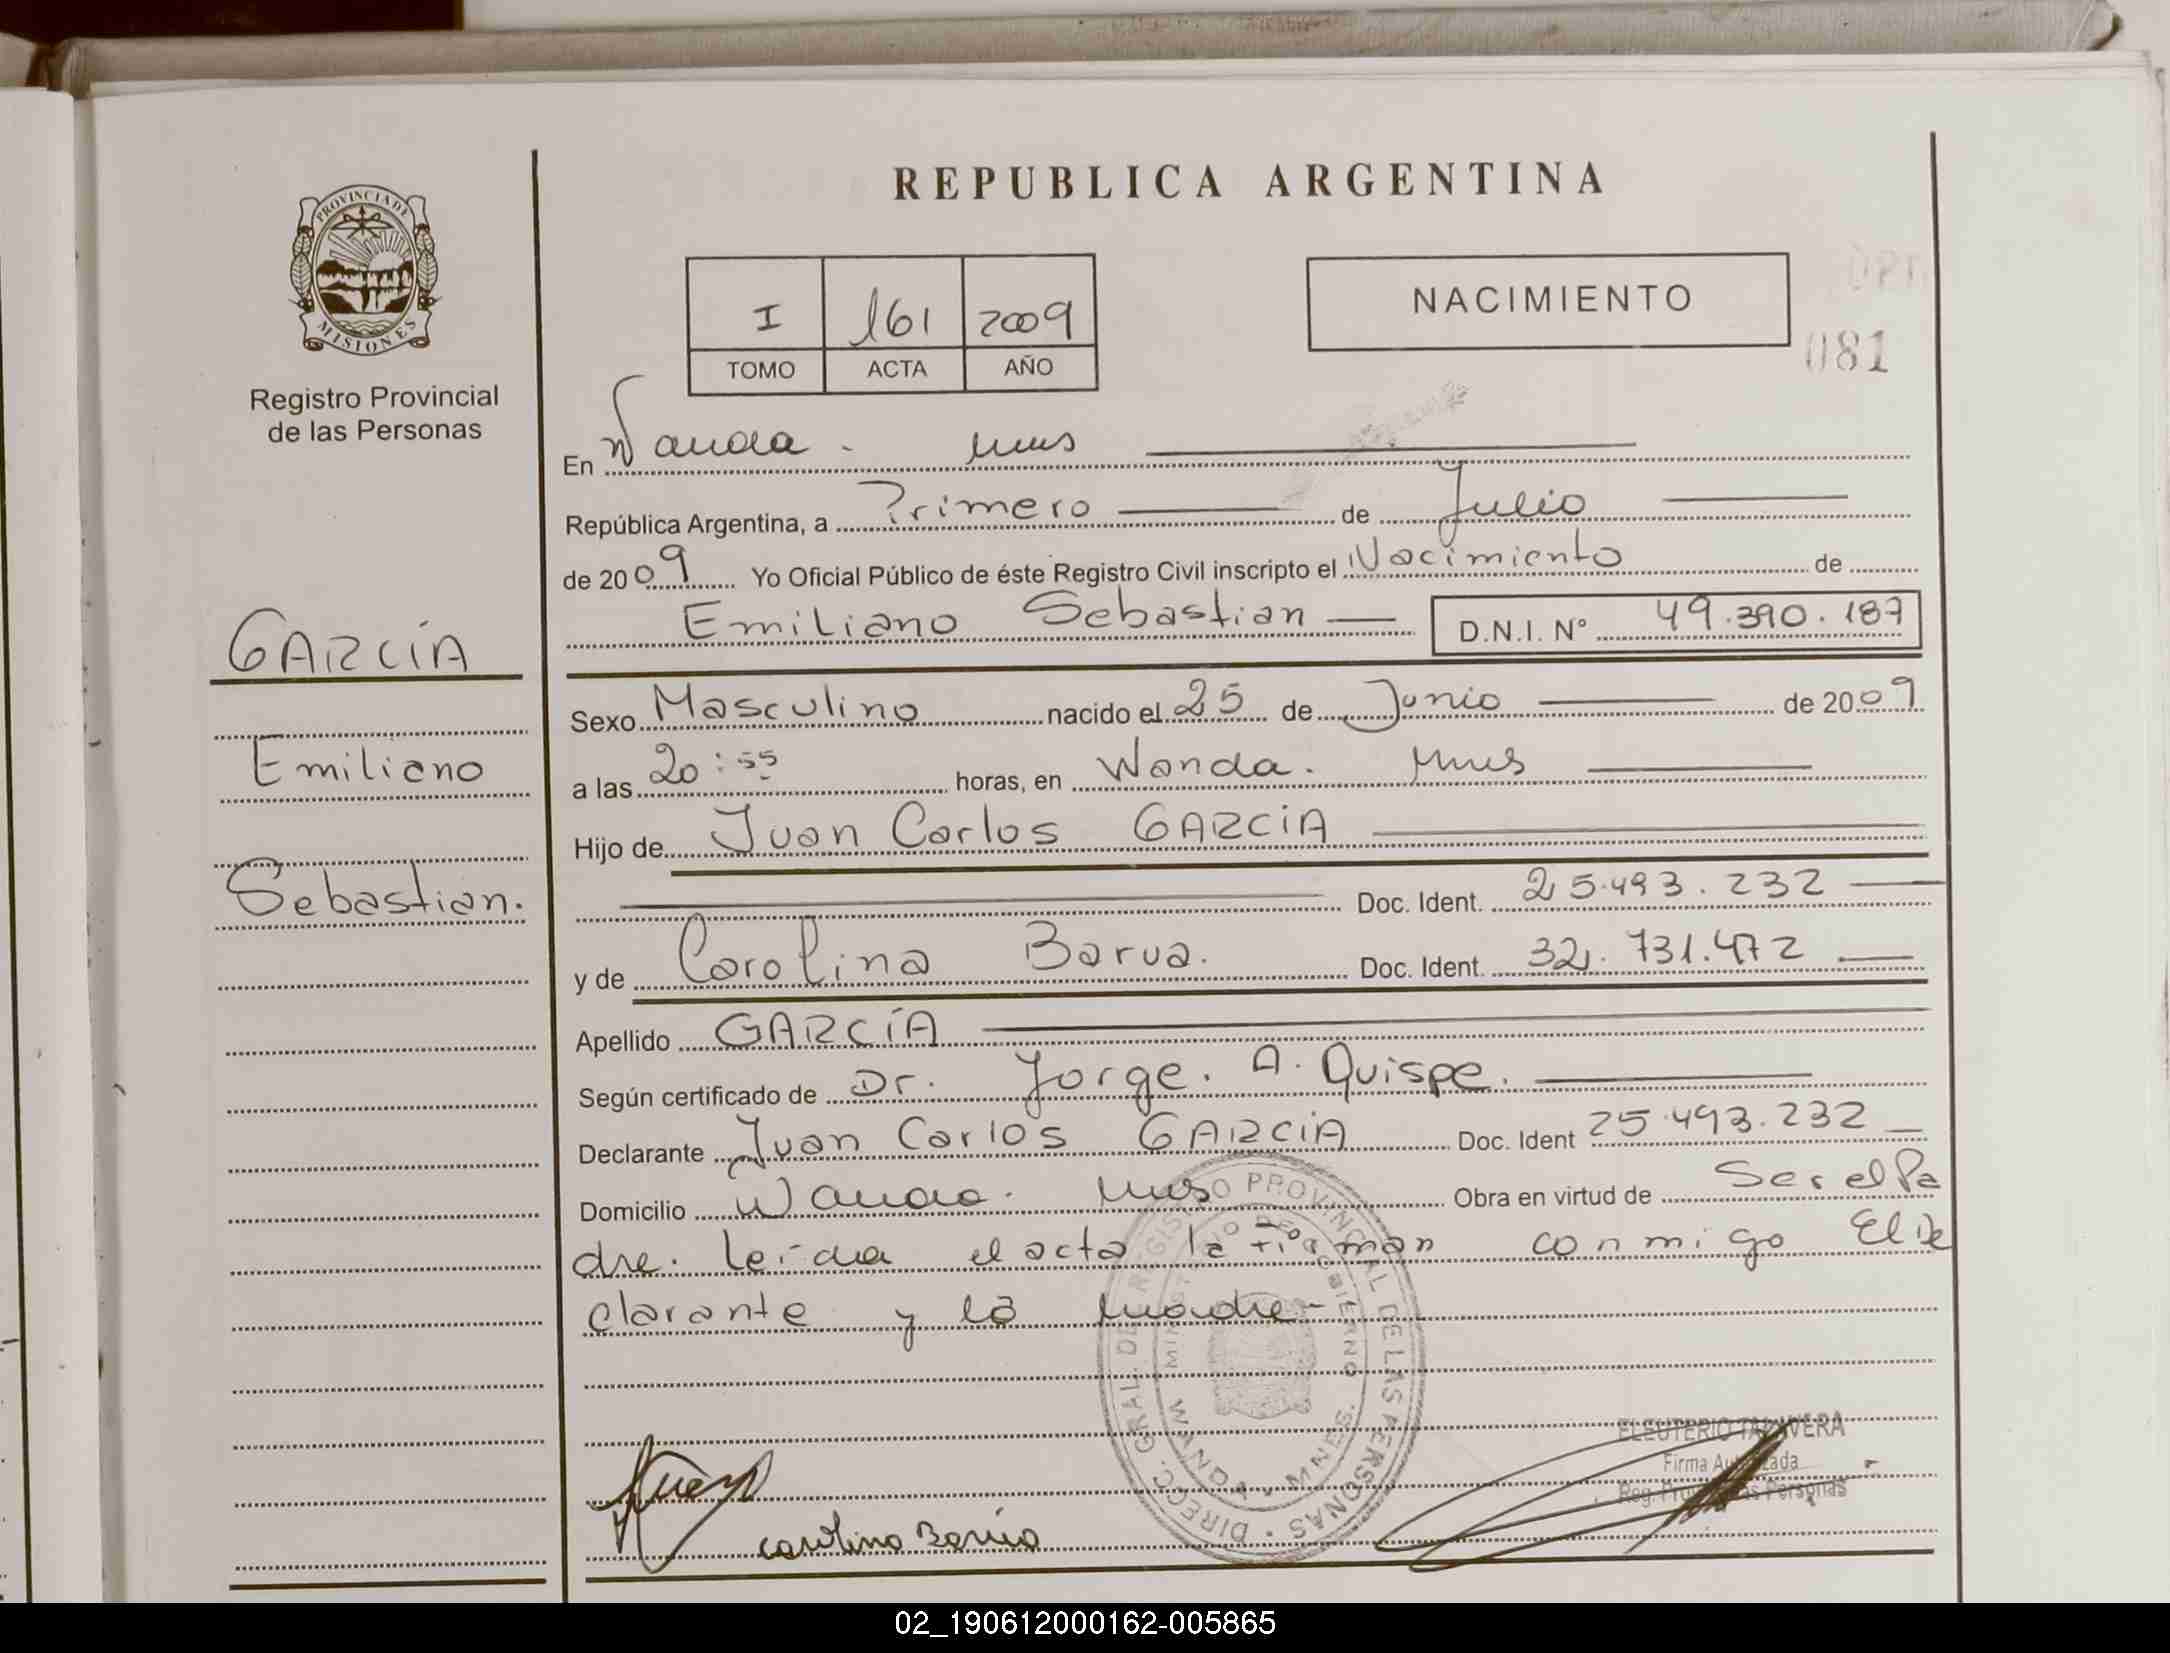 REPUBLICA ARGENTINA
PROVINCIA DE MISIONES
Registro Provincial
de las Personas
I 161 2009
TOMO ACTA AÑO
NACIMIENTO
081
En Wanda. Mnes
República Argentina, a Primero de Julio
de 2009 Yo Oficial Público de éste Registro Civil inscripto el Nacimiento de
Emiliano Sebastian D.N.I. N° 49.390.187
GARCÍA
Emiliano
Sebastian.
Sexo Masculino nacido el 25 de Junio de 2009
a las 20:55 horas, en Wanda. Mnes
Hijo de Juan Carlos GARCIA
Doc. Ident. 25.493.232
y de Carolina Barua. Doc. Ident. 32.731.472
Apellido GARCÍA
Según certificado de Dr. Jorge. A. Quispe.
Declarante Juan Carlos GARCIA Doc. Ident 25.493.232
Domicilio Wanda. Mnes Obra en virtud de Ser el Pa
dre. leida el acta la firman conmigo El De
clarante y la madre-
DIRECC. GRAL. DEL REGISTRO PROVINCIAL DE LAS PERSONAS
MINISTERIO DE GOBIERNO
WANDA MNES.
ELEUTERIO TALAVERA
Firma Autorizada
Reg. Prov. de las Personas
Carolina Barúa
02_190612000162-005865